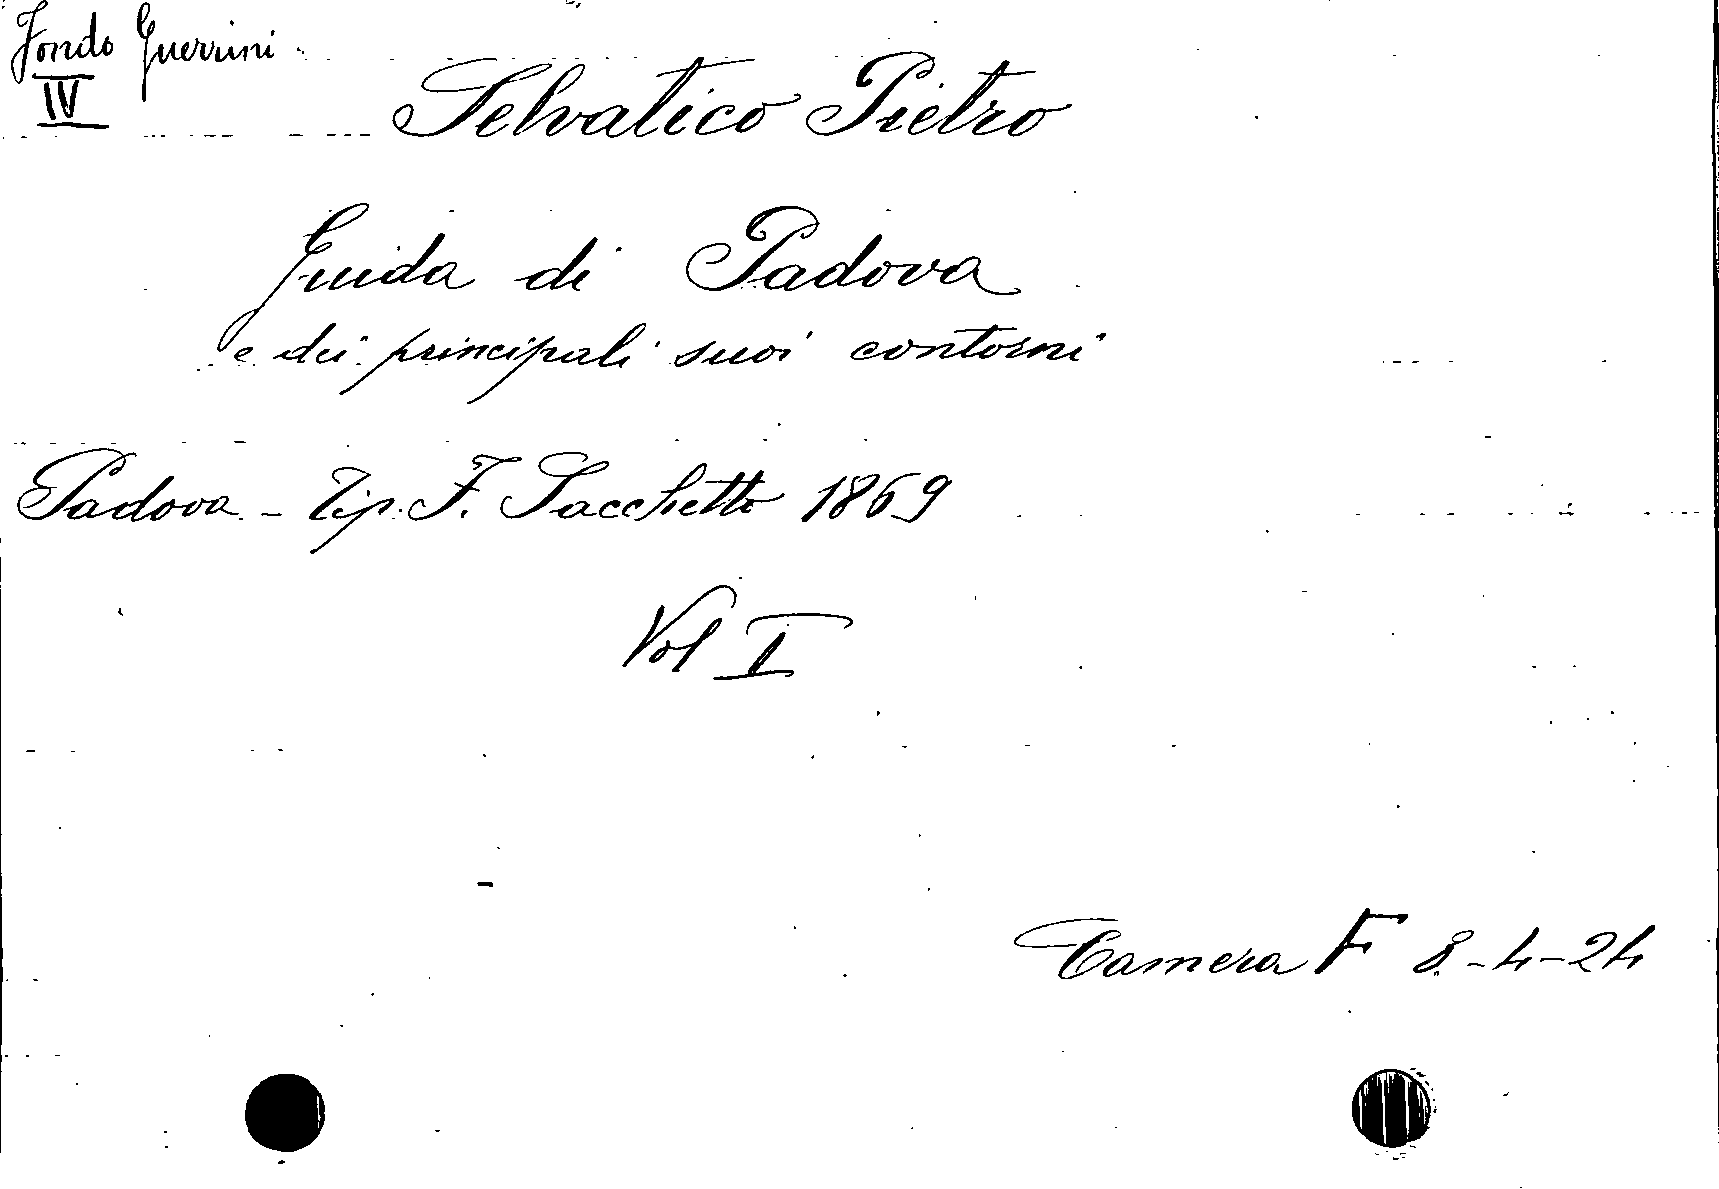 Fondo Guerrini
IV
Selvatico Pietro
Guida di Padova
e dei principali suoi contorni
Padova - Tip. F. Sacchetto 1869
Vol I
Camera F 8-4-24